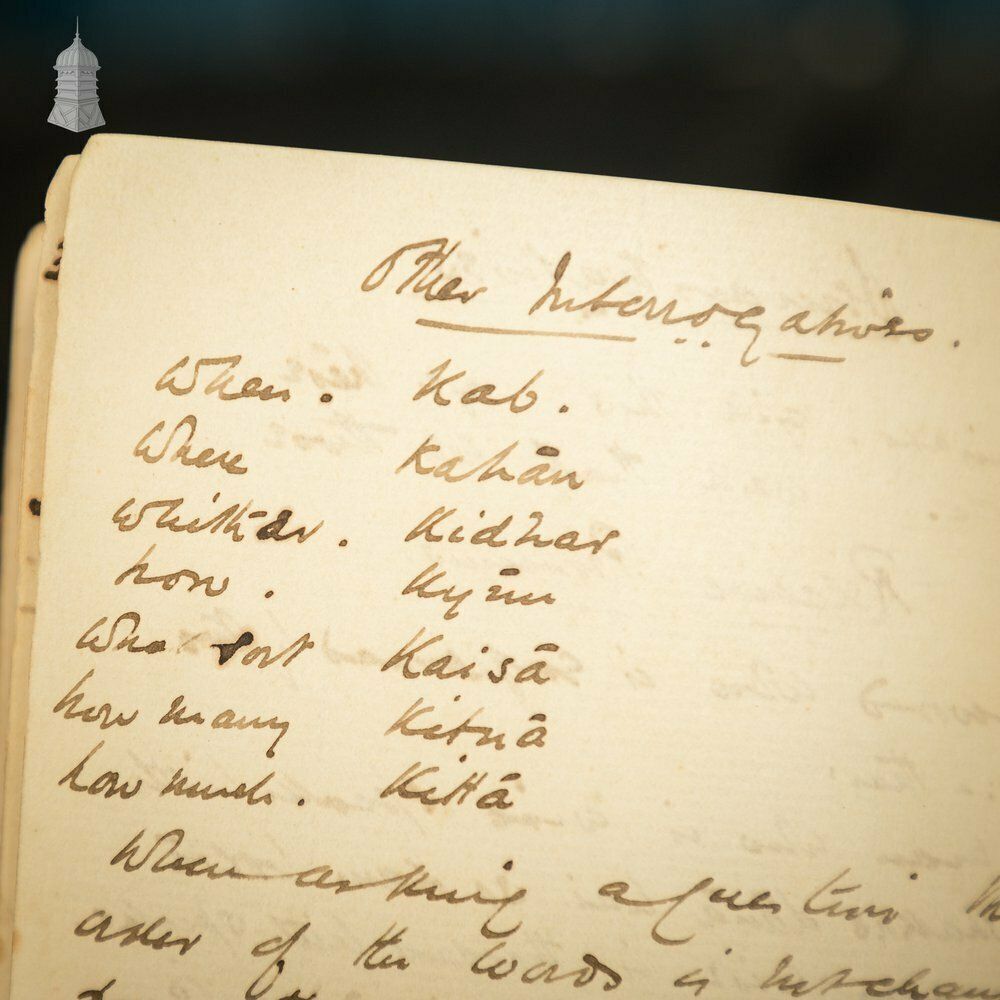 Other Interrogatives.
When. Kab.
Where Kahān
Whither. Kidhar
how. Kyūn
Wha sort Kaisā
how many Kitnā
how much. Kittā
When asking a question the
order of the words is not chan